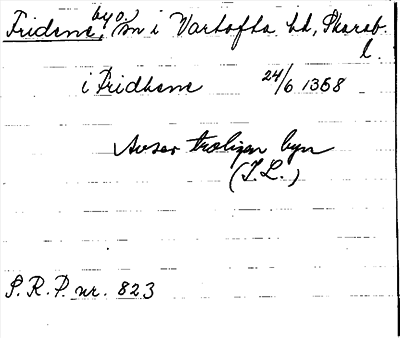 Fridene, by o. sn i Vartofta hd, Skarab.
l.
i Fridhene 24/6 1358
Avser troligen byn
(I.L.)
S.R.P. nr. 823